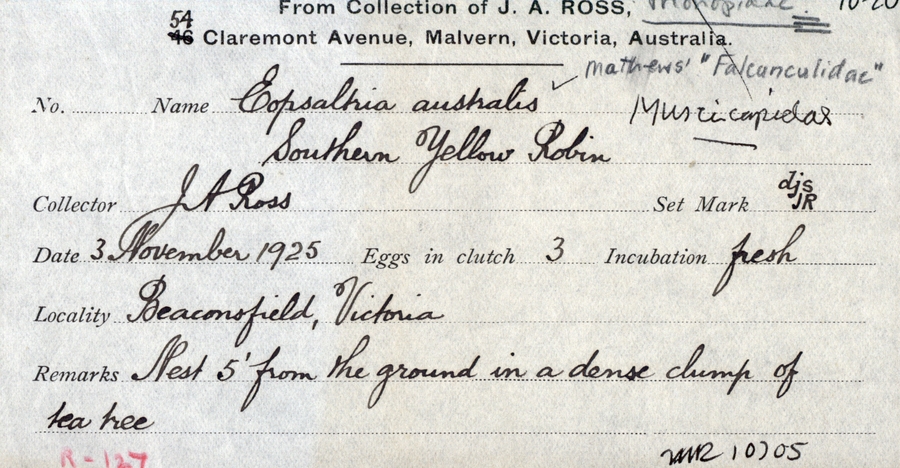 From Collection of J. A. ROSS,
54
46 Claremont Avenue, Malvern, Victoria, Australia.
mathews' "Falcunculidae"
No. Name Eopsaltria australis
Muscicapidae
Southern Yellow Robin
Collector J A Ross Set Mark djs JR
Date 3 November 1925 Eggs in clutch 3 Incubation fresh
Locality Beaconsfield, Victoria
Remarks Nest 5' from the ground in a dense clump of
tea tree
R-127